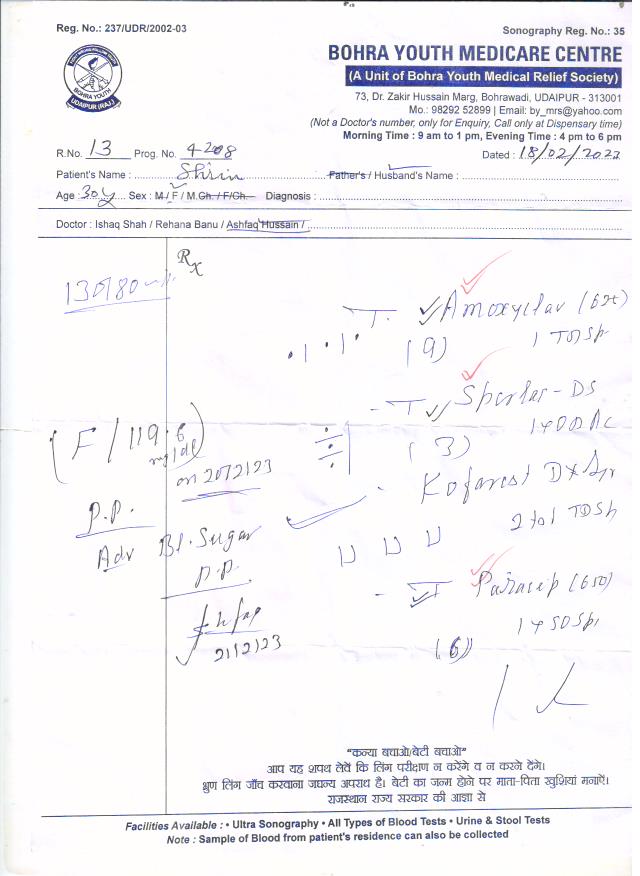 Reg. No.: 237/UDR/2002-03
Sonography Reg. No.: 35
BOHRA YOUTH MEDICARE CENTRE
(A Unit of Bohra Youth Medical Relief Society)
BOHRA YOUTH
UDAIPUR (RAJ.)
73, Dr. Zakir Hussain Marg, Bohrawadi, UDAIPUR - 313001
Mo.: 98292 52899 | Email: by_mrs@yahoo.com
(Not a Doctor's number, only for Enquiry, Call only at Dispensary time)
Morning Time : 9 am to 1 pm, Evening Time : 4 pm to 6 pm
R.No. 13 Prog. No. 4208 Dated : 18/02/2023
Patient's Name : Shirin Father's / Husband's Name :
Age : 30y Sex : M / F / M.Ch. / F/Ch. Diagnosis :
Doctor : Ishaq Shah / Rehana Banu / Ashfaq Hussain /
Rx
130/80
T. Amoxyclav (625)
1 TDS
(9)
T Sportar-DS
1 OD AC
(3)
(F / 119.6
mg/dl)
on 20/2/23
Kofarest DX Syr
P.P.
Adv Bl. Sugar
P.P.
T Paracip (650)
1 SOS
(6)
21/2/23
"कन्या बचाओ/बेटी बचाओ"
आप यह शपथ लेवें कि लिंग परीक्षण न करेंगे व न करने देंगे।
भ्रुण लिंग जाँच करवाना जघन्य अपराध है। बेटी का जन्म होने पर माता-पिता खुशियां मनाऐं।
राजस्थान राज्य सरकार की आज्ञा से
Facilities Available : • Ultra Sonography • All Types of Blood Tests • Urine & Stool Tests
Note : Sample of Blood from patient's residence can also be collected